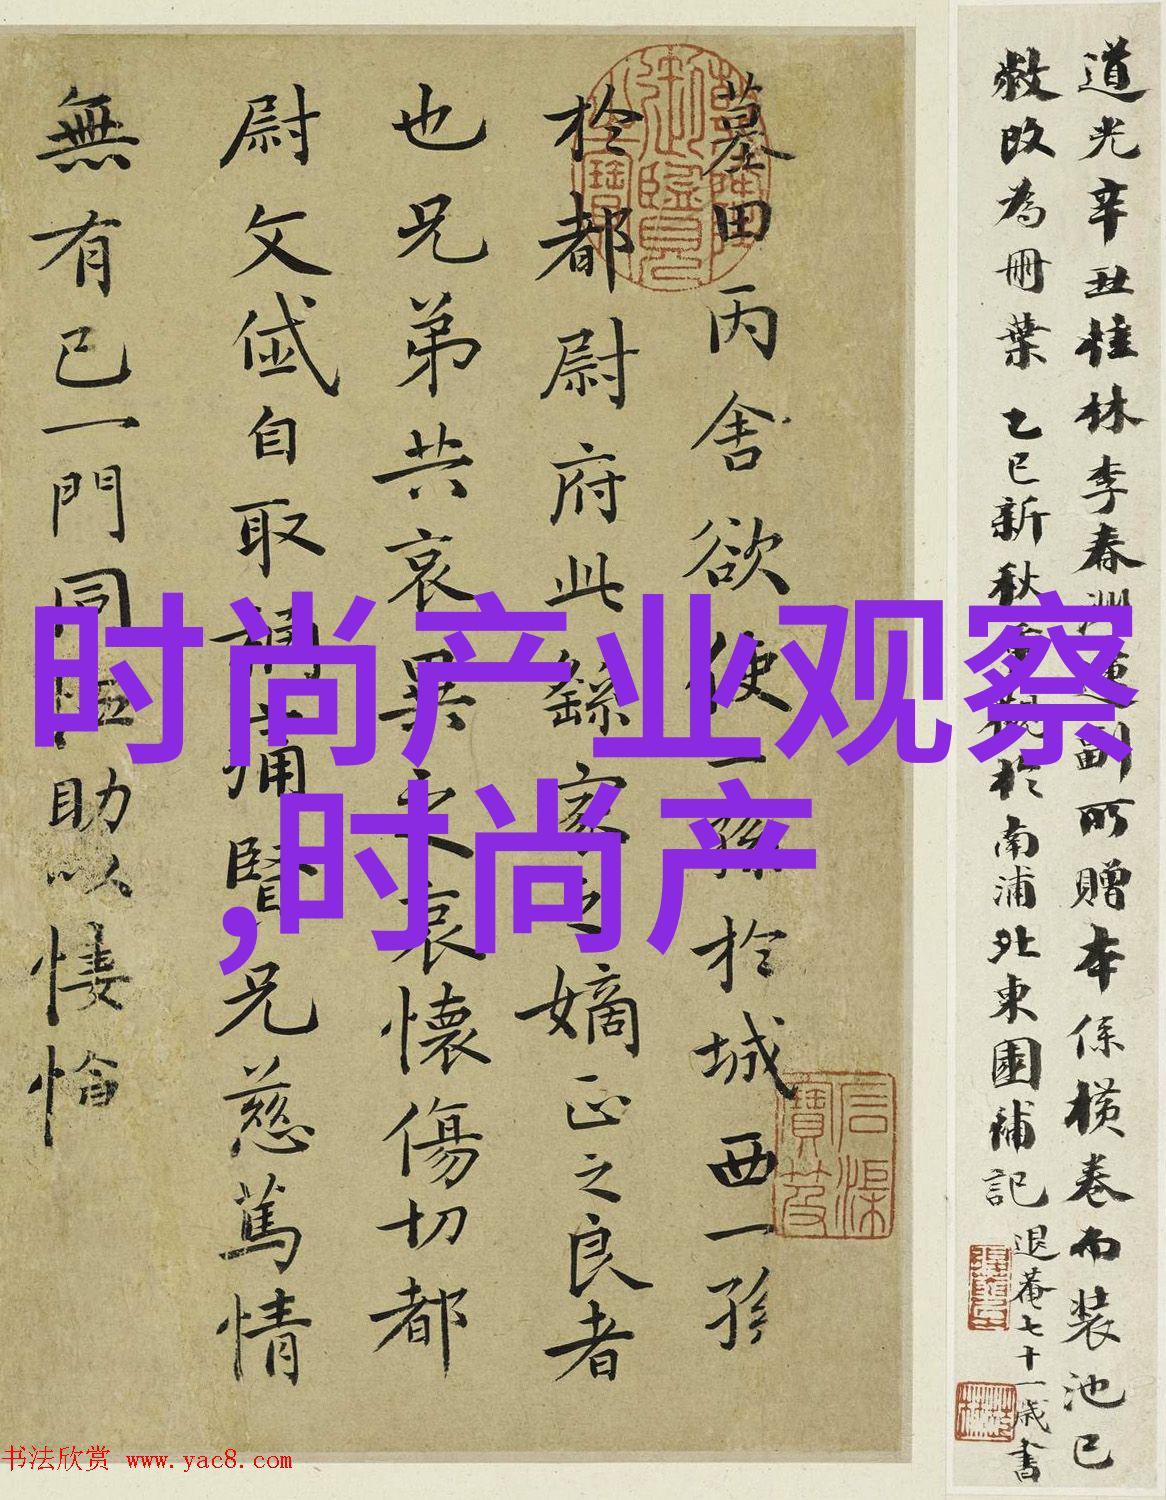 道光辛丑桂林李春洲運副所贈本係橫卷而裝池已
敝改為冊葉 乙巳新秋於南浦北東園補記 退菴七十一歲書
墓田丙舍欲使一孫於城西一孫
於都尉府此繇家之嫡正之良者
也兄弟共哀異之哀懷傷切都
尉文自取禍痛賢兄慈篤情
無有已一門同恤助以悽愴
时尚产业观察
,时尚产
书法欣赏 www.yac8.com